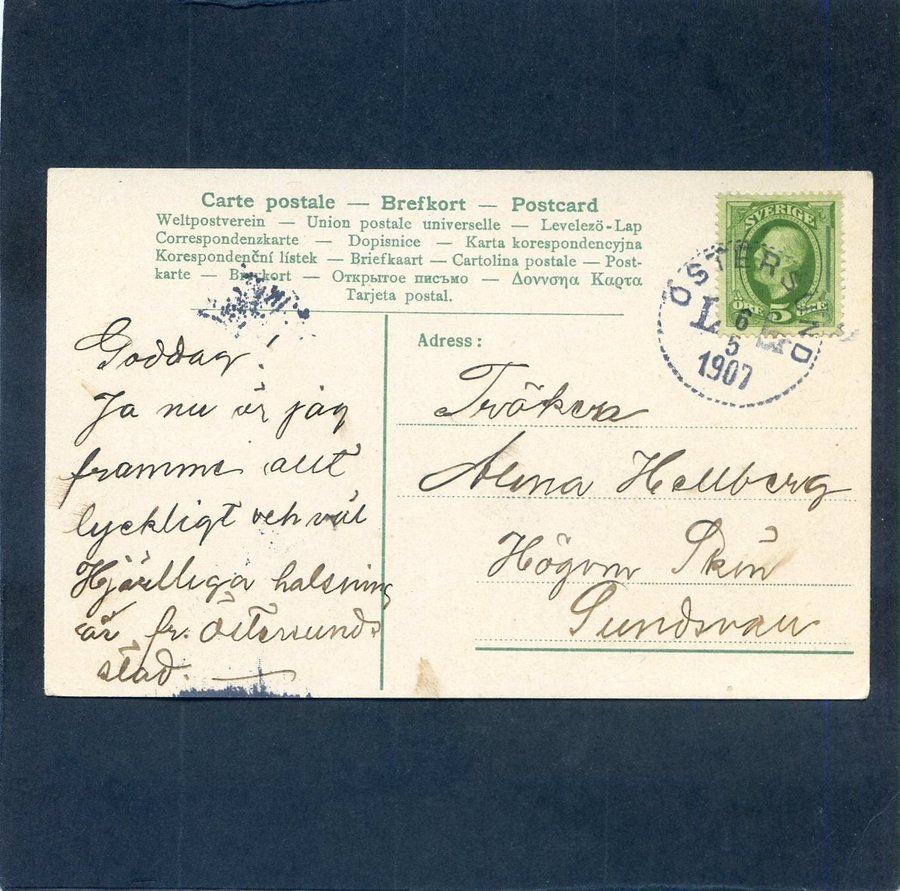 Carte postale — Brefkort — Postcard
Weltpostverein — Union postale universelle — Levelezö-Lap
Correspondenzkarte — Dopisnice — Karta korespondencyjna
Korespondenční lístek — Briefkaart — Cartolina postale — Post-
karte — Brevkort — Открытое письмо — Δοννσηα Καρτα
Tarjeta postal.
SVERIGE
ÖRE 5 ÖRE
ÖSTERSUND
6
5
1907
Goddag!
Ja nu är jag
framme allt
lyckligt och väl
Hjärtliga halsning
ar fr. Östersunds
stad.
Adress:
Fröken
Alma Hellberg
Högom Skön
Sundsvall